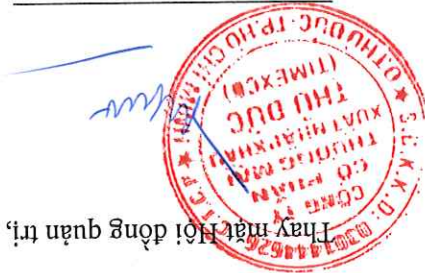 Thay mặt Hội đồng quản trị,
CÔNG TY
CỔ PHẦN
THƯƠNG MẠI
XUẤT NHẬP KHẨU
THỦ ĐỨC
(TIMEXCO)
Q.THỦ ĐỨC - TP.HỒ CHÍ MINH